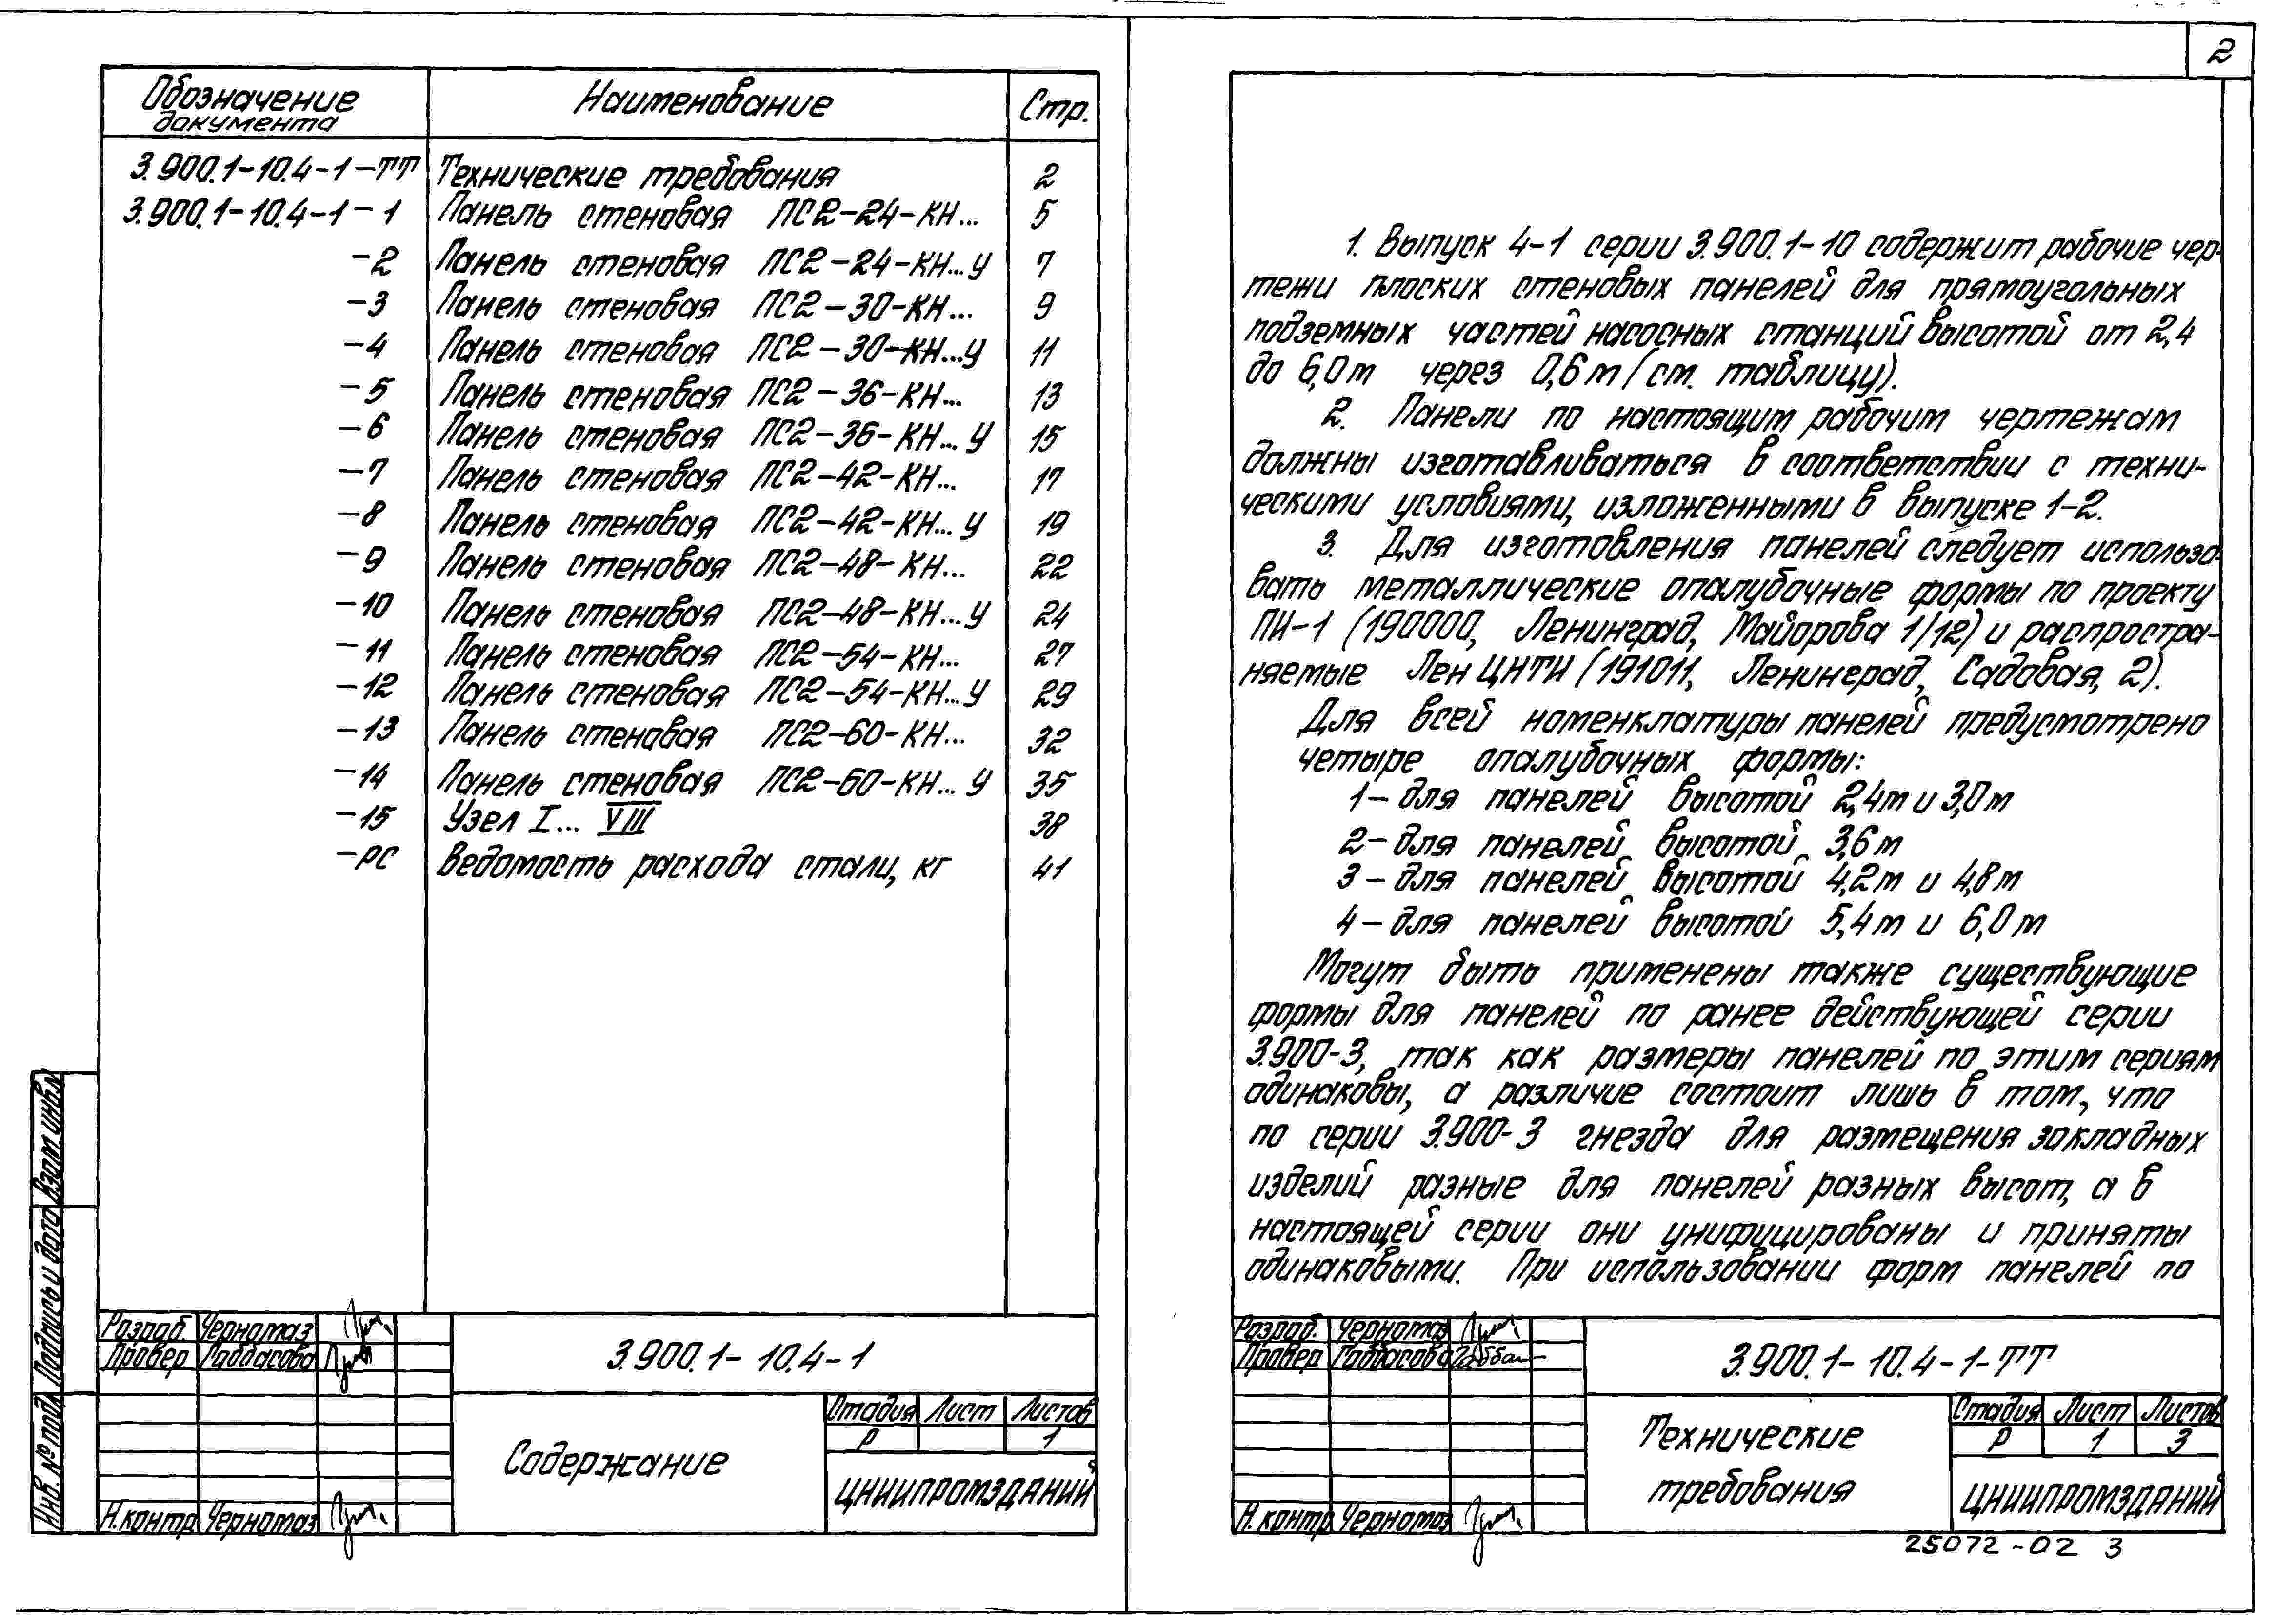 Обозначение документа Наименование Стр.
3.900.1-10.4-1-ТТ Технические требования 2
3.900.1-10.4-1-1 Панель стеновая ПС2-24-КН... 5
-2 Панель стеновая ПС2-24-КН...У 7
-3 Панель стеновая ПС2-30-КН... 9
-4 Панель стеновая ПС2-30-КН...У 11
-5 Панель стеновая ПС2-36-КН... 13
-6 Панель стеновая ПС2-36-КН...У 15
-7 Панель стеновая ПС2-42-КН... 17
-8 Панель стеновая ПС2-42-КН...У 19
-9 Панель стеновая ПС2-48-КН... 22
-10 Панель стеновая ПС2-48-КН...У 24
-11 Панель стеновая ПС2-54-КН... 27
-12 Панель стеновая ПС2-54-КН...У 29
-13 Панель стеновая ПС2-60-КН... 32
-14 Панель стеновая ПС2-60-КН...У 35
-15 Узел I... VIII 38
-РС Ведомость расхода стали, кг 41
Инв. № подл. Подпись и дата Взам. инв. №
Разраб. Черномаз
Провер Габбасова
Н.контр Черномаз
3.900.1-10.4-1
Содержание
Стадия Лист Листов
Р 1
ЦНИИПРОМЗДАНИЙ
2
1. Выпуск 4-1 серии 3.900.1-10 содержит рабочие чер-
тежи плоских стеновых панелей для прямоугольных
подземных частей насосных станций высотой от 2,4
до 6,0 м через 0,6 м (см. таблицу).
2. Панели по настоящим рабочим чертежам
должны изготавливаться в соответствии с техни-
ческими условиями, изложенными в выпуске 1-2.
3. Для изготовления панелей следует использо-
вать металлические опалубочные формы по проекту
ПИ-1 (190000, Ленинград, Майорова 1/12) и распростра-
няемые ЛенЦНТИ (191011, Ленинград, Садовая, 2).
Для всей номенклатуры панелей предусмотрено
четыре опалубочных формы:
1 - для панелей высотой 2,4 м и 3,0 м
2 - для панелей высотой 3,6 м
3 - для панелей высотой 4,2 м и 4,8 м
4 - для панелей высотой 5,4 м и 6,0 м
Могут быть применены также существующие
формы для панелей по ранее действующей серии
3.900-3, так как размеры панелей по этим сериям
одинаковы, а различие состоит лишь в том, что
по серии 3.900-3 гнезда для размещения закладных
изделий разные для панелей разных высот, а в
настоящей серии они унифицированы и приняты
одинаковыми. При использовании форм панелей по
Разраб. Черномаз
Провер Габбасова
Н.контр Черномаз
3.900.1-10.4-1-ТТ
Технические
требования
Стадия Лист Листов
Р 1 3
ЦНИИПРОМЗДАНИЙ
25072-02 3